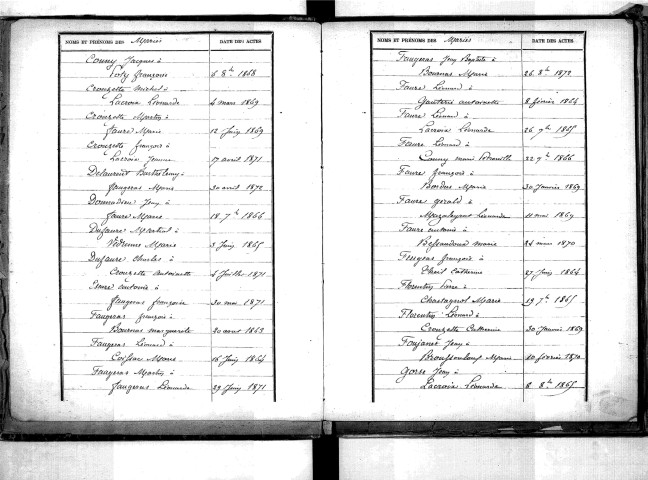 NOMS ET PRÉNOMS DES Mariés DATE DES ACTES
Couny Jacques à
Poty françoise 6 8bre 1868
Crouzette Michel à
Lacroix Léonarde 4 mars 1869
Crouzette Martin à
faure Marie 12 Juin 1869
Crouzette françois à
Lacroix Jeanne 17 avril 1871
Delaurent Barthélemy à
faugeras Marie 30 avril 1872
Donnadieu Jean à
faure Marie 18 7bre 1866
Dufaure Martial à
Marie 3 Juin 1865
Dufaure Charles à
Crouzette antoinette 4 Juillet 1871
antoine à
faugeras françoise 30 mai 1871
Faugeras françois à
Bournas marguerite 30 aout 1863
Faugeras Léonard à
Marie 16 Juin 1864
Faugeras Martin à
faugeras Léonarde 29 Juin 1871
NOMS ET PRÉNOMS DES Mariés DATE DES ACTES
Faugeras Jean Baptiste à
Bournas Marie 26 8bre 1872
Faure Léonard à
Gauterie antoinette 8 février 1864
Faure Léonard à
Lacroix Léonarde 26 9bre 1865
Faure Léonard à
Couny marie 22 9bre 1866
Faure françois à
Bordas Marie 30 Janvier 1869
Faure gérald à
Mazaleyrat Léonarde 11 mai 1869
Faure antoine à
Bessandoux marie 24 mai 1870
Feugeas françois à
Catherine 27 Juin 1864
Florentin Pierre à
Chastagnol Marie 19 7bre 1865
Florentin Léonard à
Crouzette Catherine 30 Janvier 1869
Foujanet Jean à
Broussouloux Marie 10 février 1870
Gorse Jean à
Lacroix Léonarde 8 8bre 1865